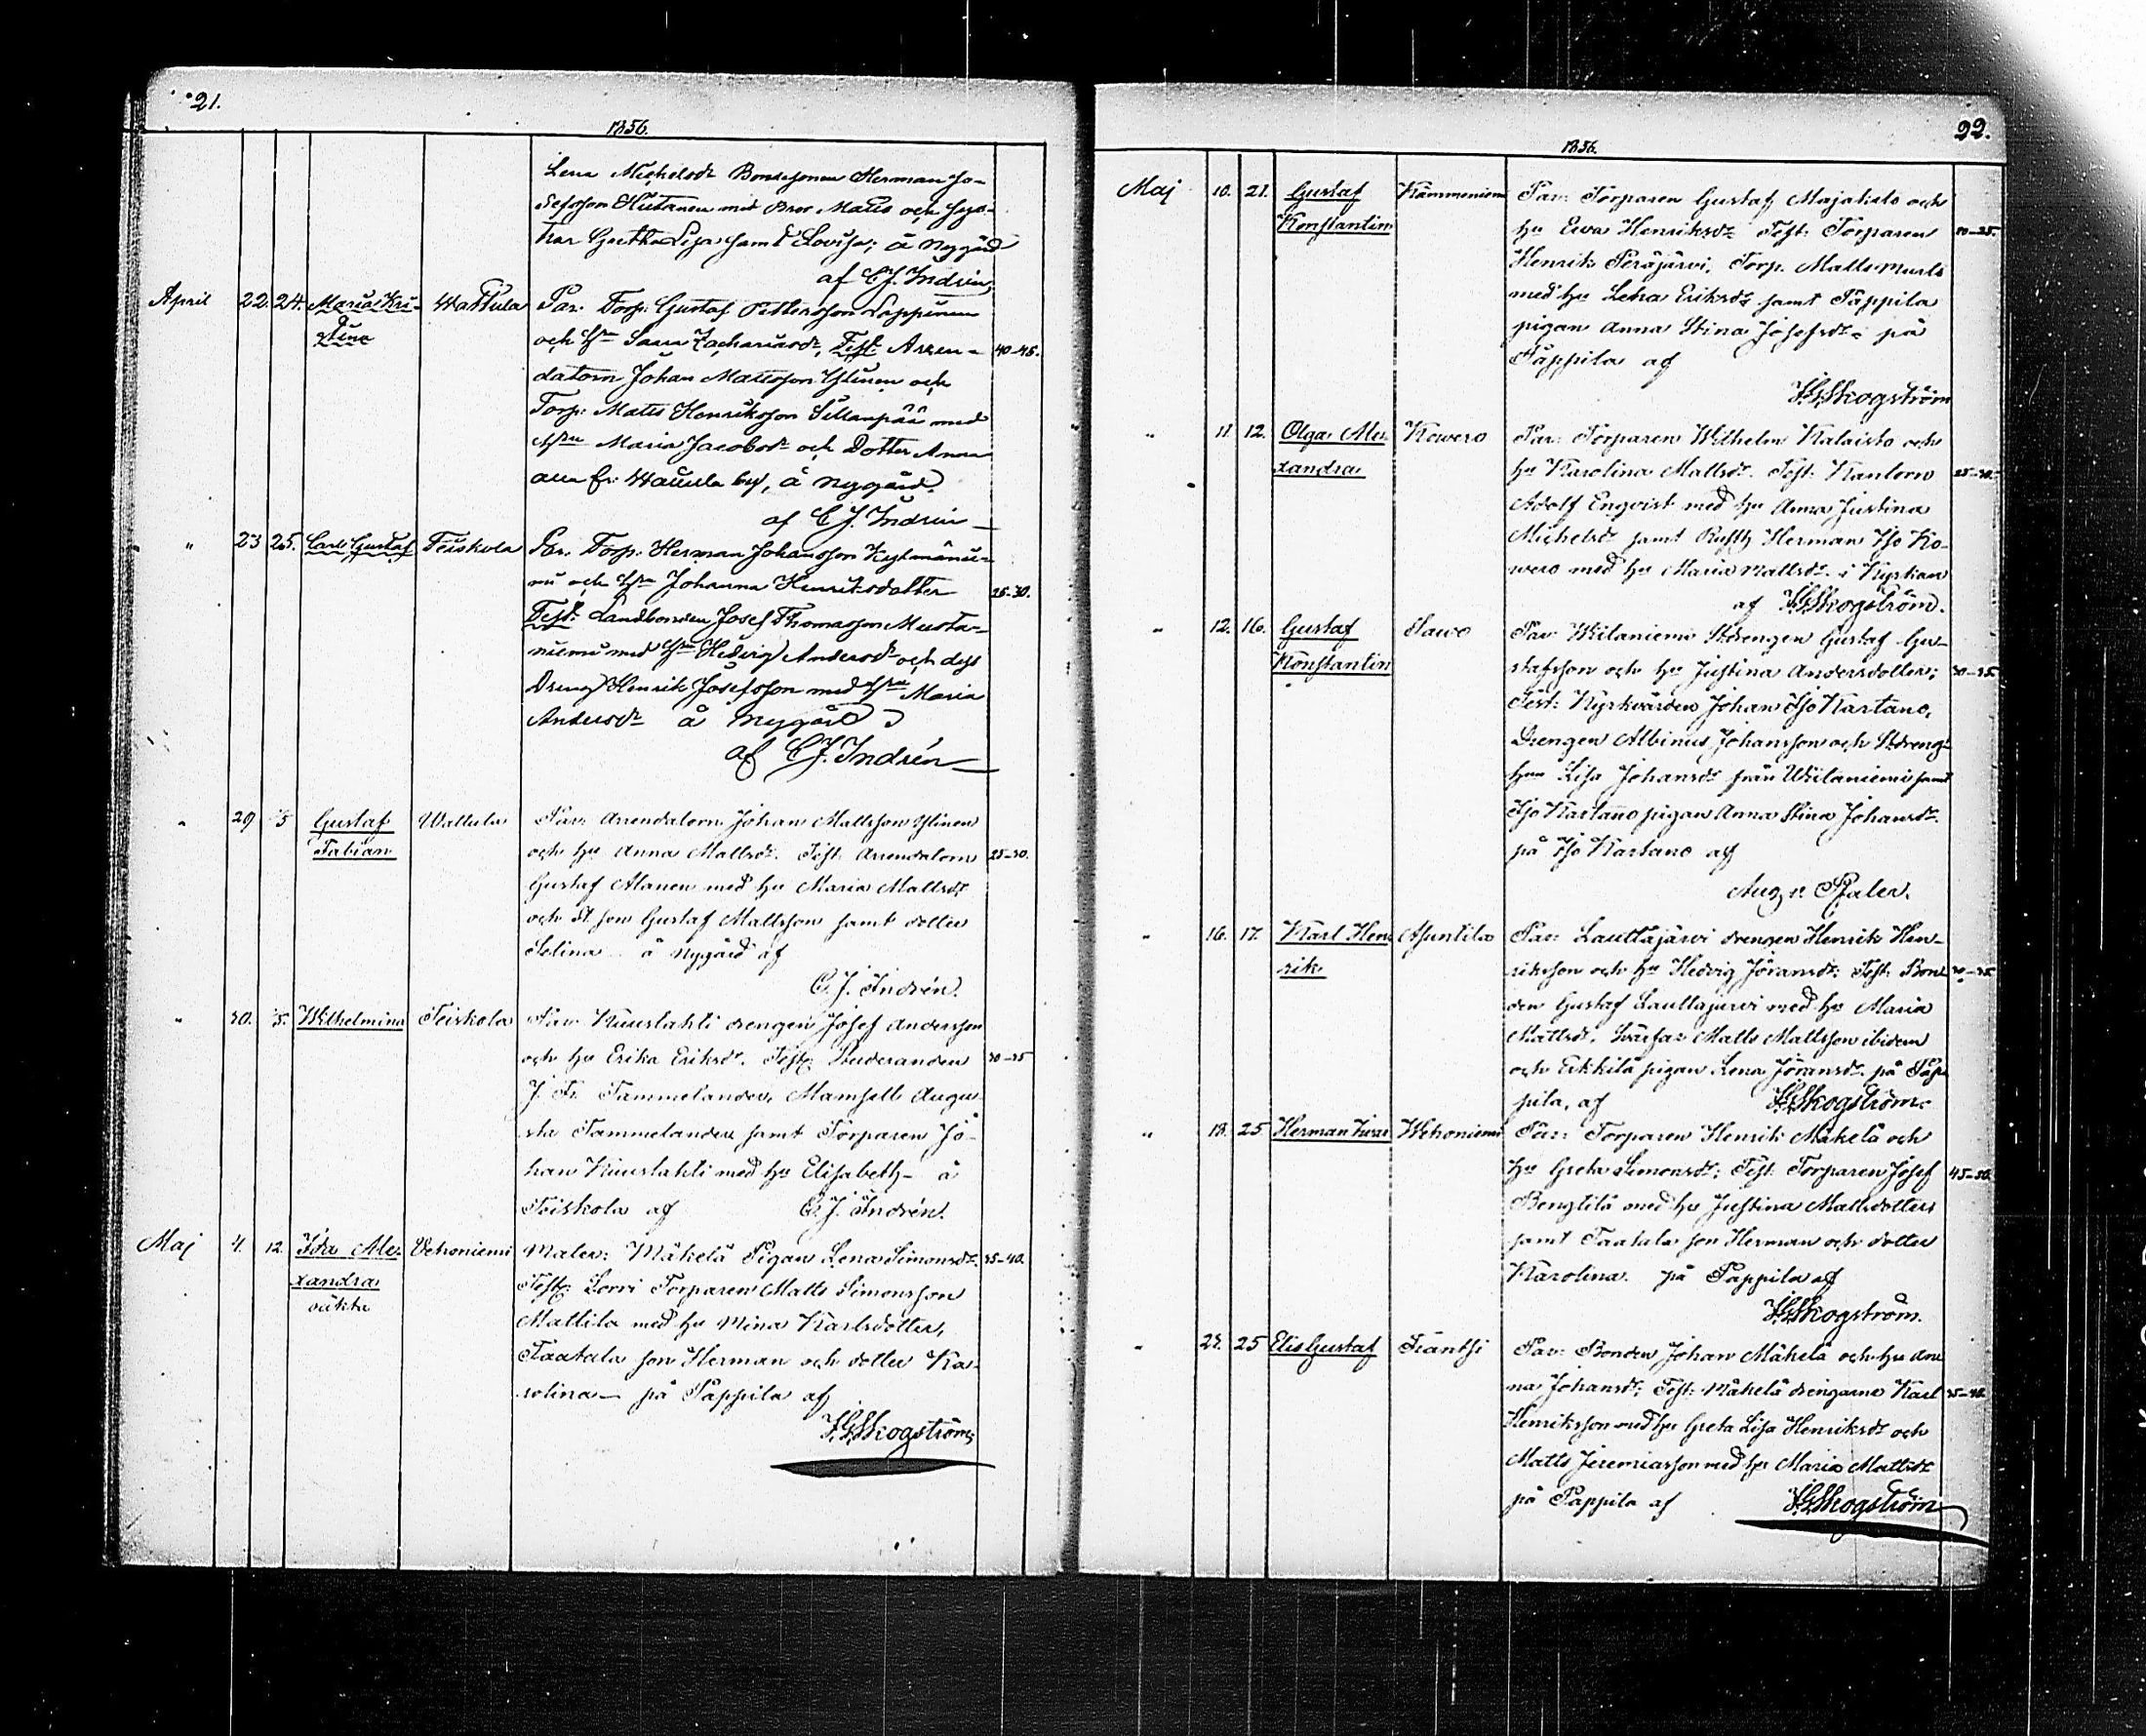 21.
1856.
Lena Michelsdr Bondesonen Herman Jo-
sefsson Hietanen med Bror Matts och Sys-
trar Gretha Lisa samt Lovisa; å Nygård
af C J. Indrén.
April 22. 24. Maria Kri- Wattula Par: Torp: Gustaf Pettersson Lappinen
stina och Hru Sara Zachariasdr, Test: Arren- 40-45.
datorn Johan Mattsson Ylinen och
Torp: Matts Henriksson Sillanpää med
Hru Maria Jacobsdr och Dotter Anna
alla fr: Wattula by, å Nygård.
af C J. Indrén
" 23 25. Carl Gustaf Teiskola Par. Torp: Herman Johansson Kylmänie-
mi och Hru Johanna Henriksdotter 25-30.
Test: Landbonden Josef Thomasson Musta-
niemi med Hru Hedvig Andersdr och dess
Dreng Henrik Josefsson med Hru Maria
Andersdr å Nygård
af C J. Indrén
" 29 /5 Gustaf Wattula Par: Arrendatorn Johan Mattsson Ylinen
Fabian och hu Anna Mattsdr. Test: Arrendatorn 25-30.
Gustaf Alanen med hu Maria Mattsdr
och son Gustaf Mattsson samt dotter
Selina å Nygård af
C. J. Indrén.
" 30. /5. Wilhelmina Teiskola Par: Kuuslahti drengen Josef Andersson
och hu Erika Eriksdr. Test: Studeranden 30-35
J. Fr. Tammelander, Mamsell Augus-
ta Tammelander samt Torparen Jo-
han Kuuslahti med hu Elisabeth å
Teiskola af C. J. Indrén.
Maj 4. 12. Ida Ale- Vehoniemi Mater: Mäkelä Pigan Lena Simonsdr. 35-40.
xandra Test: Torparen Matts Simonsson
oäkta Mattila med hu Mina Karlsdotter,
Taatala son Herman och dotter Ka-
rolina på Pappila af
Skogström
22.
1856.
Maj 10. 21. Gustaf Kämmeniemi Par: Torparen Gustaf Majalahto och
Konstantin hu Eva Henriksdr. Test: Torparen
Henrik Peräjärvi, Torp. Matts
med hu Lena Eriksdr samt Pappila
pigan Anna Stina Josefsdr på
Pappila af
Skogström
" 11. 12. Olga Ale- Kowero Par: Torparen Wilhelm Kalaisto och
xandra hu Karolina Mattsdr. Test: Kantorn 25-30.
Adolf Enqvist med hu Anna Justina
Michelsdr samt Rusth Herman Iso Ko-
wero med hu Maria Mattsdr. i Kyrkan
af Skogström.
" 12. 16. Gustaf Sawo Par: Wiitaniemi Stdrengen Gustaf Gu-
Konstantin stafsson och hu Justina Andersdotter; 30-35
Test: Kyrkvärden Johan Iso Kartano,
Drengen Albinus Johansson och Stdreng
hun Lisa Johansdr från Wiitaniemi samt
Iso Kartano pigan Anna Stina Johansdr.
på Iso Kartano af
Aug. v. Pfaler.
" 16. 17. Karl Hen- Asuntila Par: Lauttajärvi drengen Henrik Hen-
rik riksson och hu Hedvig Jöransdr: Test: Bon- 30-35
den Gustaf Lauttajärvi med hu Maria
Mattsdr, Svärfar Matts Mattsson ibidem
och Erkkilä pigan Lena Jöransdr. på Pap-
pila, af Skogström.
" 18. 25 Herman Wehoniemi Par: Torparen Henrik Mäkelä och
hu Greta Simonsdr; Test: Torparen Josef 45-50.
Bengtilä med hu Justina Mattsdotter
samt Taatala son Herman och dotter
Karolina. på Pappila af
Skogström.
" 25 Elis Gustaf Träntsi Par: Bonden Johan Mäkelä och hu An-
na Johansdr; Test: Mäkelä drengarne Karl 35-40.
Henriksson med hu Greta Lisa Henriksdr och
Matts Jeremiasson med hu Maria Mattsdr
på Pappila af Skogström